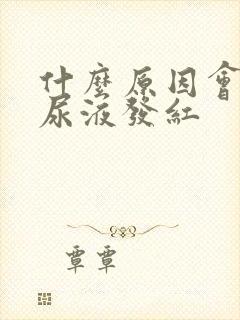 什麼原因會
尿液發紅
覃覃